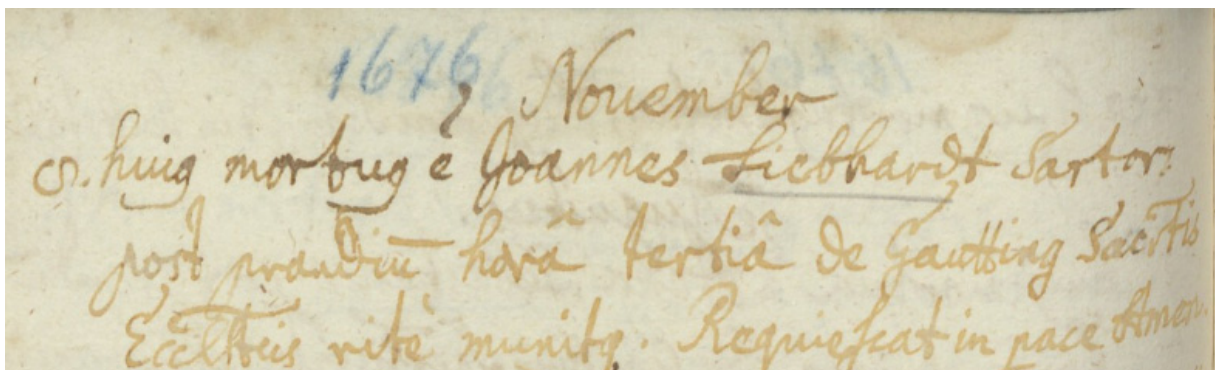 1676
November
8. huig mortug ē Joannes Liebhardt Sartor:
post prandiū horâ tertiâ de Gautting Sacrtis
Ecclticis ritè munitg. Requiescat in pace Amen.